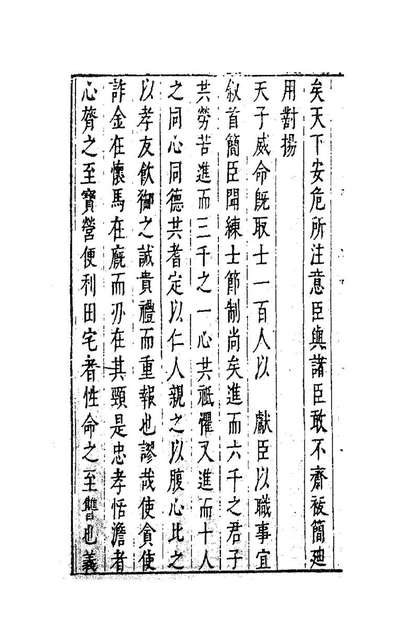 矣天下安危所注意臣與諸臣敢不齋祓簡廸
用對揚
天子威命旣取士一百人以　獻臣以職事宜
敘首簡臣聞練士節制尚矣進而六千之君子
共勞苦進而三千之一心共祗懼又進而十人
之同心同德共耆定以仁人親之以腹心比之
以孝友飲御之誠貴禮而重報也謬哉使貪使
詐金在懷馬在廐而刃在其頸是忠孝恬澹者
心膂之至寶營便利田宅者性命之至讐也義